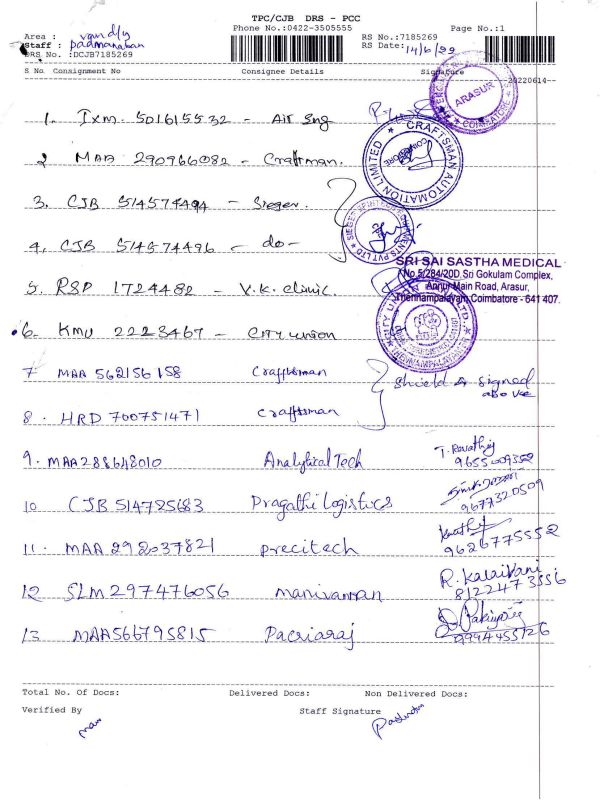 TPC/CJB DRS - PCC
Phone No.:0422-3505555
Page No.:1
Area :
Staff : Padmanaban
DRS No.:DCJB7185269
RS No.:7185269
RS Date:14/6/22
S No. Consignment No Consignee Details Signature
20220614
ARASUR
COIMBATORE
1. Ixm. 501615532 - Air Eng
2 MAA 290966082 - Craftman.
CRAFTSMAN AUTOMATION LIMITED
3. CJB 514574494 - Sieger.
4. CJB 514574496 - do -
SRI SAI SASTHA MEDICAL
No.5/284/20D, Sri Gokulam Complex,
Annur Main Road, Arasur,
Thennampalayam, Coimbatore - 641 407.
5. RSP 1724482 - V.K. clinic.
6. KMU 2223467 - CITY UNION
7 MAA 562156158 Craftsman
shield & signed
above
8. HRD 700751471 Craftsman
9. MAA288648010 Analytical Tech T. Revathy
9655009352
10 CJB 514725683 Pragathi Logistics
9677320509
11. MAA 292037821 precitech
9626775552
12 SLM 297476056 manivannan R. Kalaivani
8122473556
13 MAA566795815 Pacriaraj
9994455126
Total No. Of Docs: Delivered Docs: Non Delivered Docs:
Verified By Staff Signature